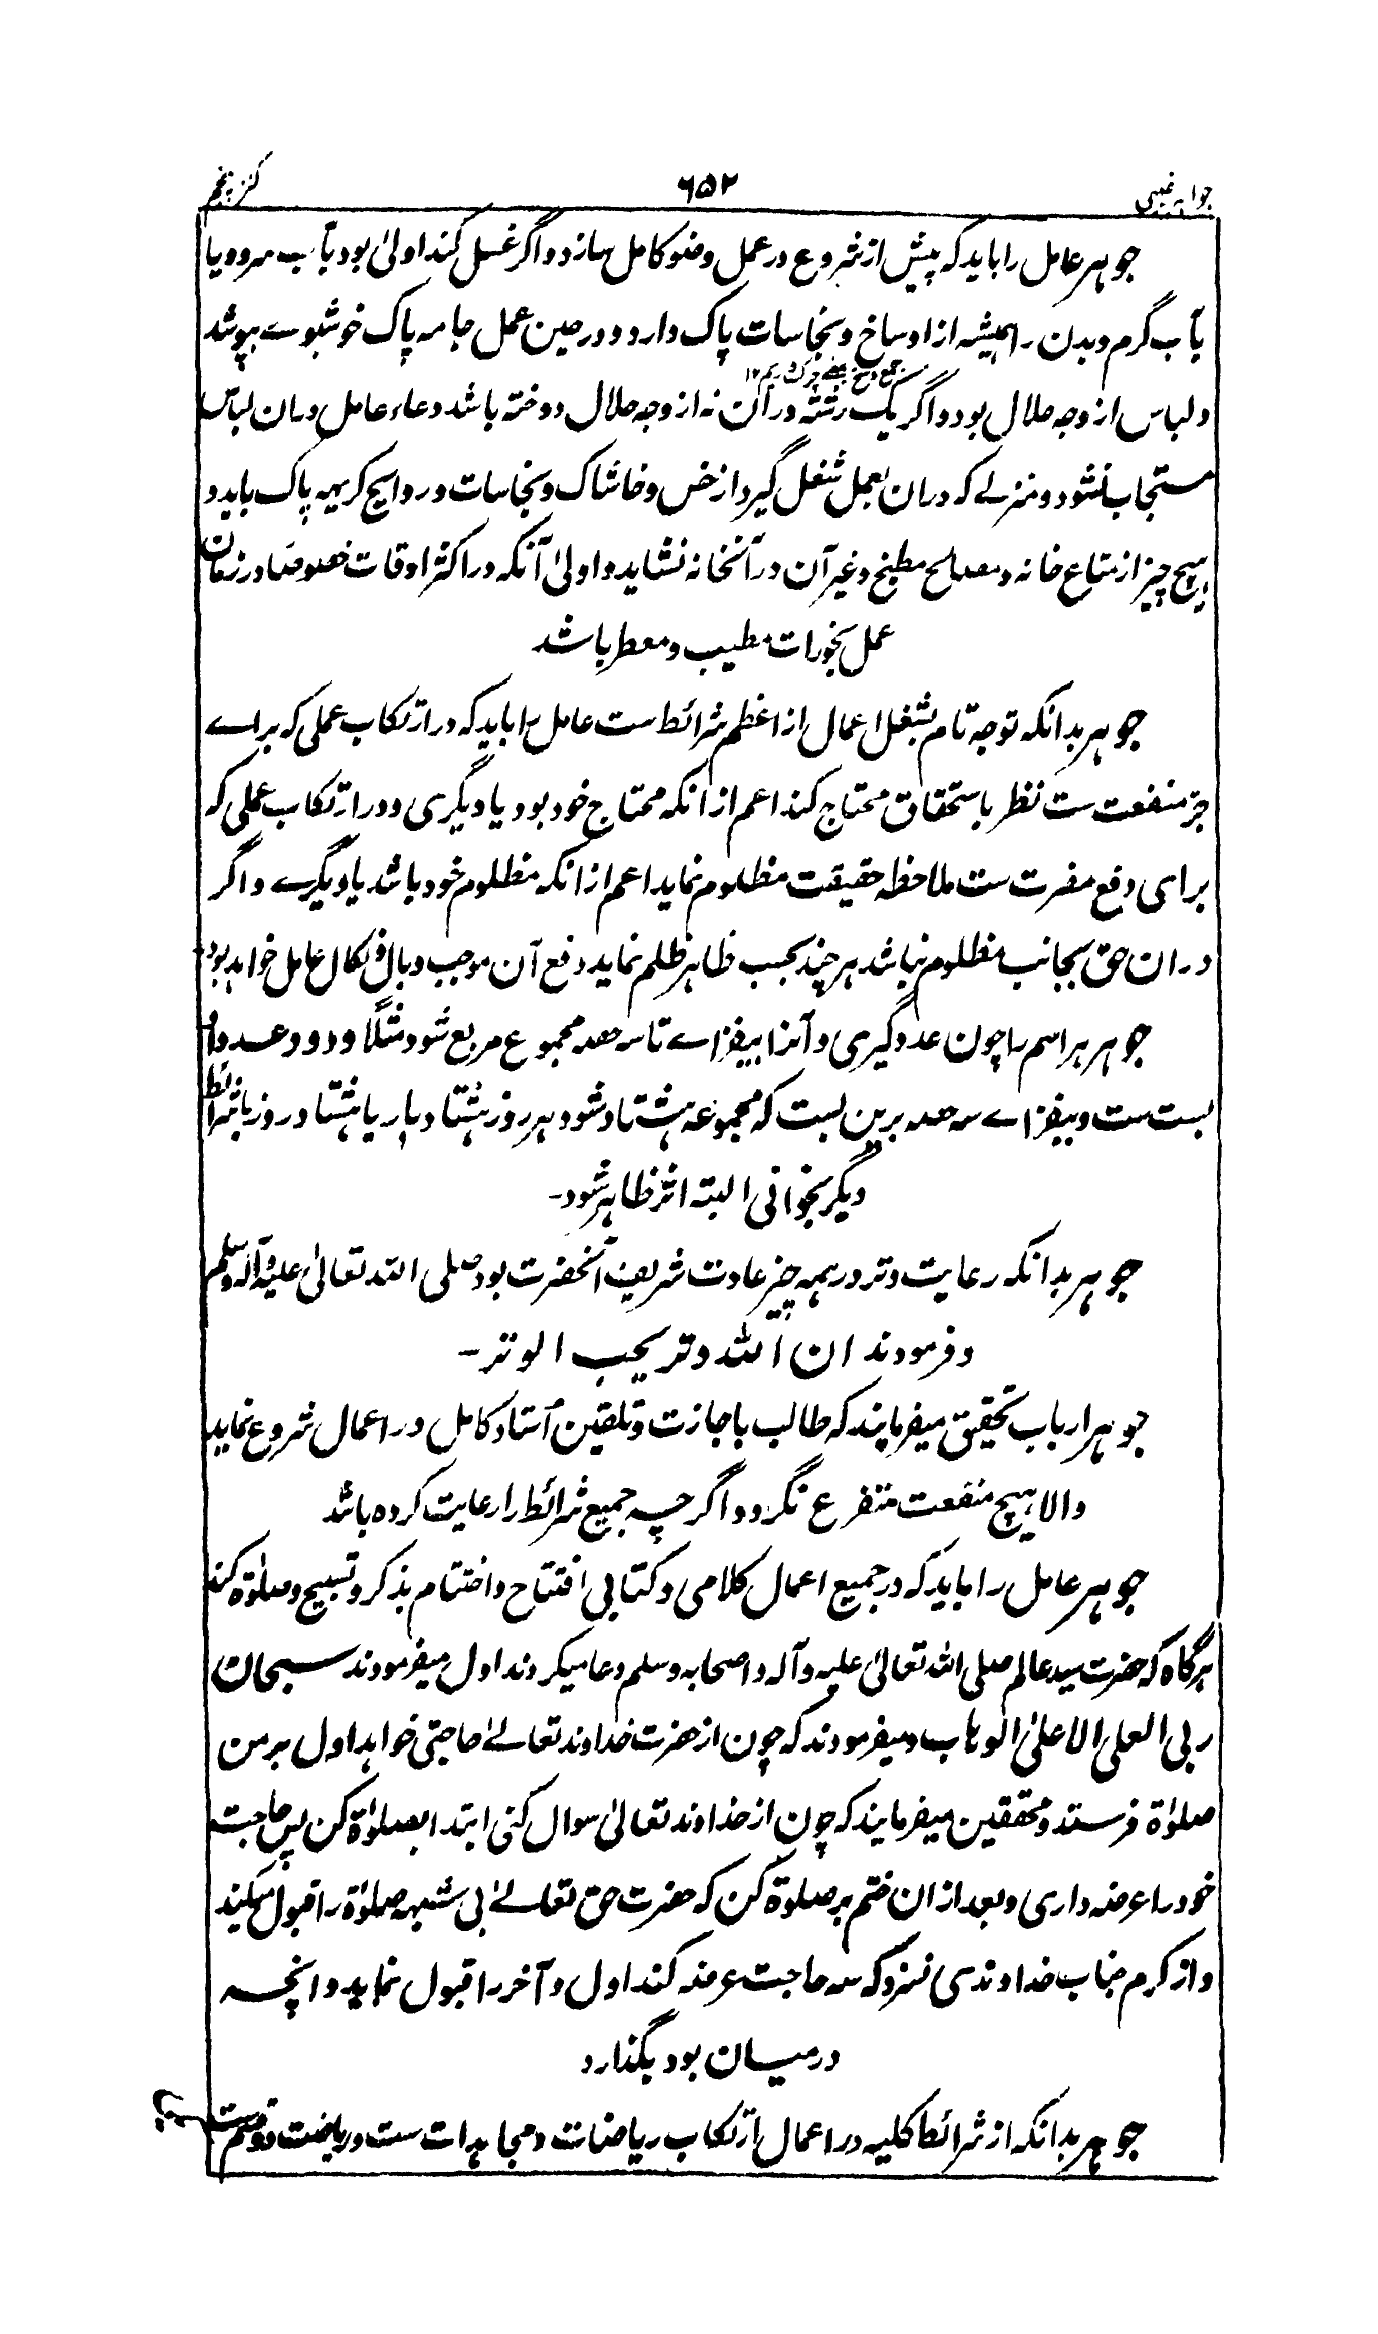 جواهر غیبی ۶۵۲ کنز پنجم
جوهر عامل را باید که پیش از شروع در عمل وضو کامل سازد و اگر غسل کند اولیٰ بود بآب سرد و یا
بآب گرم و بدن را همیشه از اوساخ و نجاسات پاک دارد و در حین عمل جامه پاک خوشبوے بپوشد
جمع وسخ بمعنے چرک و ریم ۱۲
و لباس از وجه حلال بود و اگر یک رشته در آن نه از وجه حلال دوخته باشد دعاء عامل دران لباس
مستجاب نشود و منزلے که دران بعمل شغل گیرد از خس و خاشاک و نجاسات و روایح کریهه پاک باید و
هیچ چیز از متاع خانه و مصالح مطبخ و غیر آن در آنخانه نشاید و اولیٰ آنکه در اکثر اوقات خصوصًا در زمان
عمل بخورات مطیب و معطر باشد
جوهر بدانکه توجه تام بشغل اعمال از اعظم شرائط ست عامل را باید که در ارتکاب عملی که براے
جز منفعت ست نظر باستحقاق محتاج کند اعم از انکه محتاج خود بود یا دیگری و در ارتکاب عملی که
برای دفع مضرت ست ملاحظه حقیقت مظلوم نماید اعم از انکه مظلوم خود باشد یا دیگرے و اگر
دران حق بجانب مظلوم نباشد هر چند بحسب ظاهر ظلم نماید دفع آن موجب وبال و نکال عامل خواهد بود
جوهر هر اسم را چون عدد گیری و آنرا بیفزاے تا سه صد مجموع مربع شود مثلًا ودود عدد او
بست ست و بیفزاے سه صد برین بست که مجموعه هشتاد شود هر روز هشتاد بار یا هشتاد روز با شرائط
دیگر بخوانی البته اثر ظاهر شود۔
جوهر بدانکه رعایت وتر در همه چیز عادت شریف آنحضرت بود صلی الله تعالیٰ علیه و آله و سلم
و فرمودند ان الله وتر یحب الوتر۔
جوهر ارباب تحقیق میفرمایند که طالب باجازت و تلقین اُستاد کامل در اعمال شروع نماید
و الا هیچ منفعت متفرع نگردد اگرچه جمیع شرائط را رعایت کرده باشد
جوهر عامل را باید که در جمیع اعمال کلامی و کتابی افتتاح و اختتام بذکر و تسبیح و صلوٰة کند
هرگاه که حضرت سید عالم صلی الله تعالیٰ علیه و آله و اصحابه و سلم دعا میکردند اول میفرمودند سبحان
ربی العلی الاعلیٰ الوهاب و میفرمودند که چون از حضرت خداوند تعالےٰ حاجتی خواهد اول بر من
صلوٰة فرستد و محققین میفرمایند که چون از خداوند تعالیٰ سوال کنی ابتدا بصلوٰة کن پس حاجت
خود را عرضه داری و بعد از ان ختم بر صلوٰة کن که حضرت حق تعالےٰ بی شبهه صلوٰة را قبول میکند
و از کرم جناب خداوندی نسزد که سه حاجت عرضه کند اول و آخر را قبول نماید و انچه
درمیان بود بگذارد
جوهر بدانکه از شرائط کلیه در اعمال ارتکاب ریاضات و مجاهدات ست و ریاضت دو قسم ست